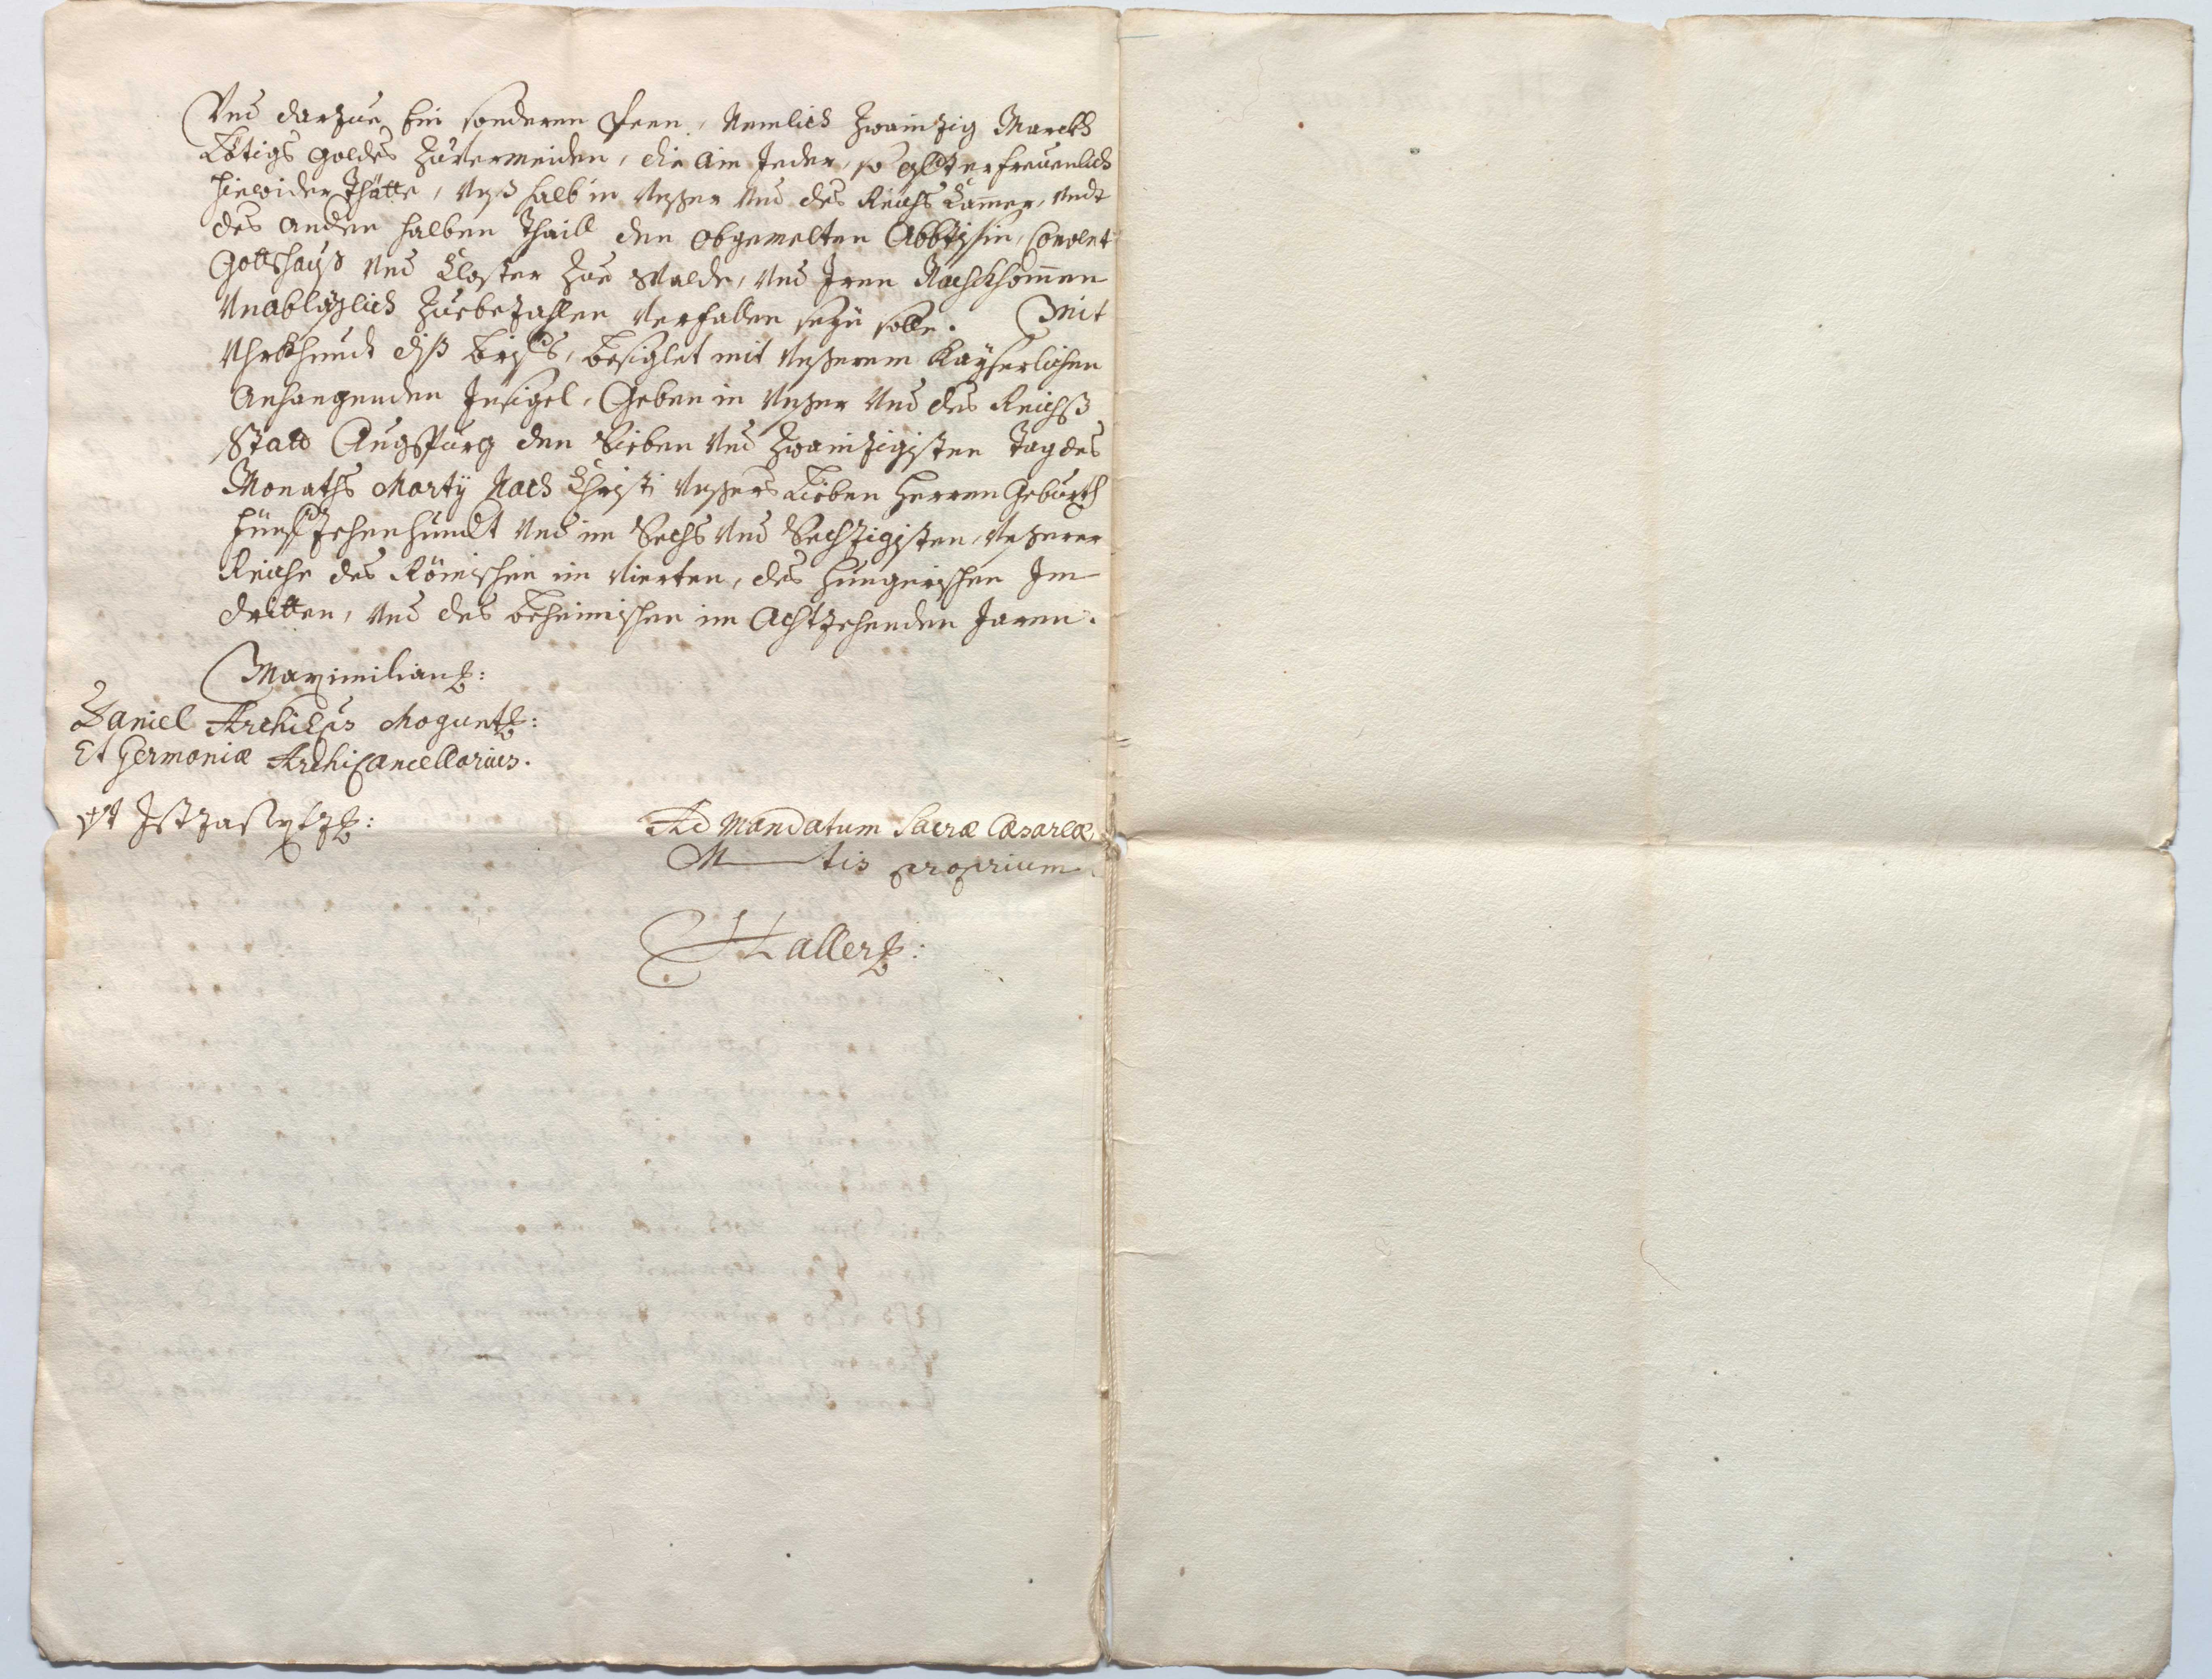 Vnd darzue Ein sonderen Peen, Nemlich Zwainzig Marckh
Lötigs Goldes Zuvermeiden, die Ain Jeder, so offt er freuenlich
hiewider Thätte, Vnß halb in Vnßer Vnd des Reichs Camer, Vndt
des Anden halben Thaill den obgemelten Abbtissin, Conuent
Gottshauß Vnd Closter Zue Walde, Vnd Iren Nachkhomen
Vnabläßlich Zuebezahlen Verfallen seyn solle. Mit
Vhrkhundt diß brieffs, besiglet mit Vnßerem Kayserlichen
Anhangenden Insigel, Geben in Vnßer Vnd des Reichß
Statt Augspurg den Siben Vnd Zwainzigisten Tag des
Monaths Martÿ Nach Christi Vnßers Lieben Herren Geburth
Fünffzehenhundt Vnd im Sechs Vnd Sechzigisten, Vnßerer
Reiche des Römischen im Vierten, des Hungerischen Im
dritten, Vnd des behemischen im Achtzehenden Jaren.
Maximilian
Daniel Archieps Mogunt:
Et Germaniæ ArchiCancellarius.
Vt
Ad Mandatum Sacræ Cæsareæ
M tis proprium
Haller